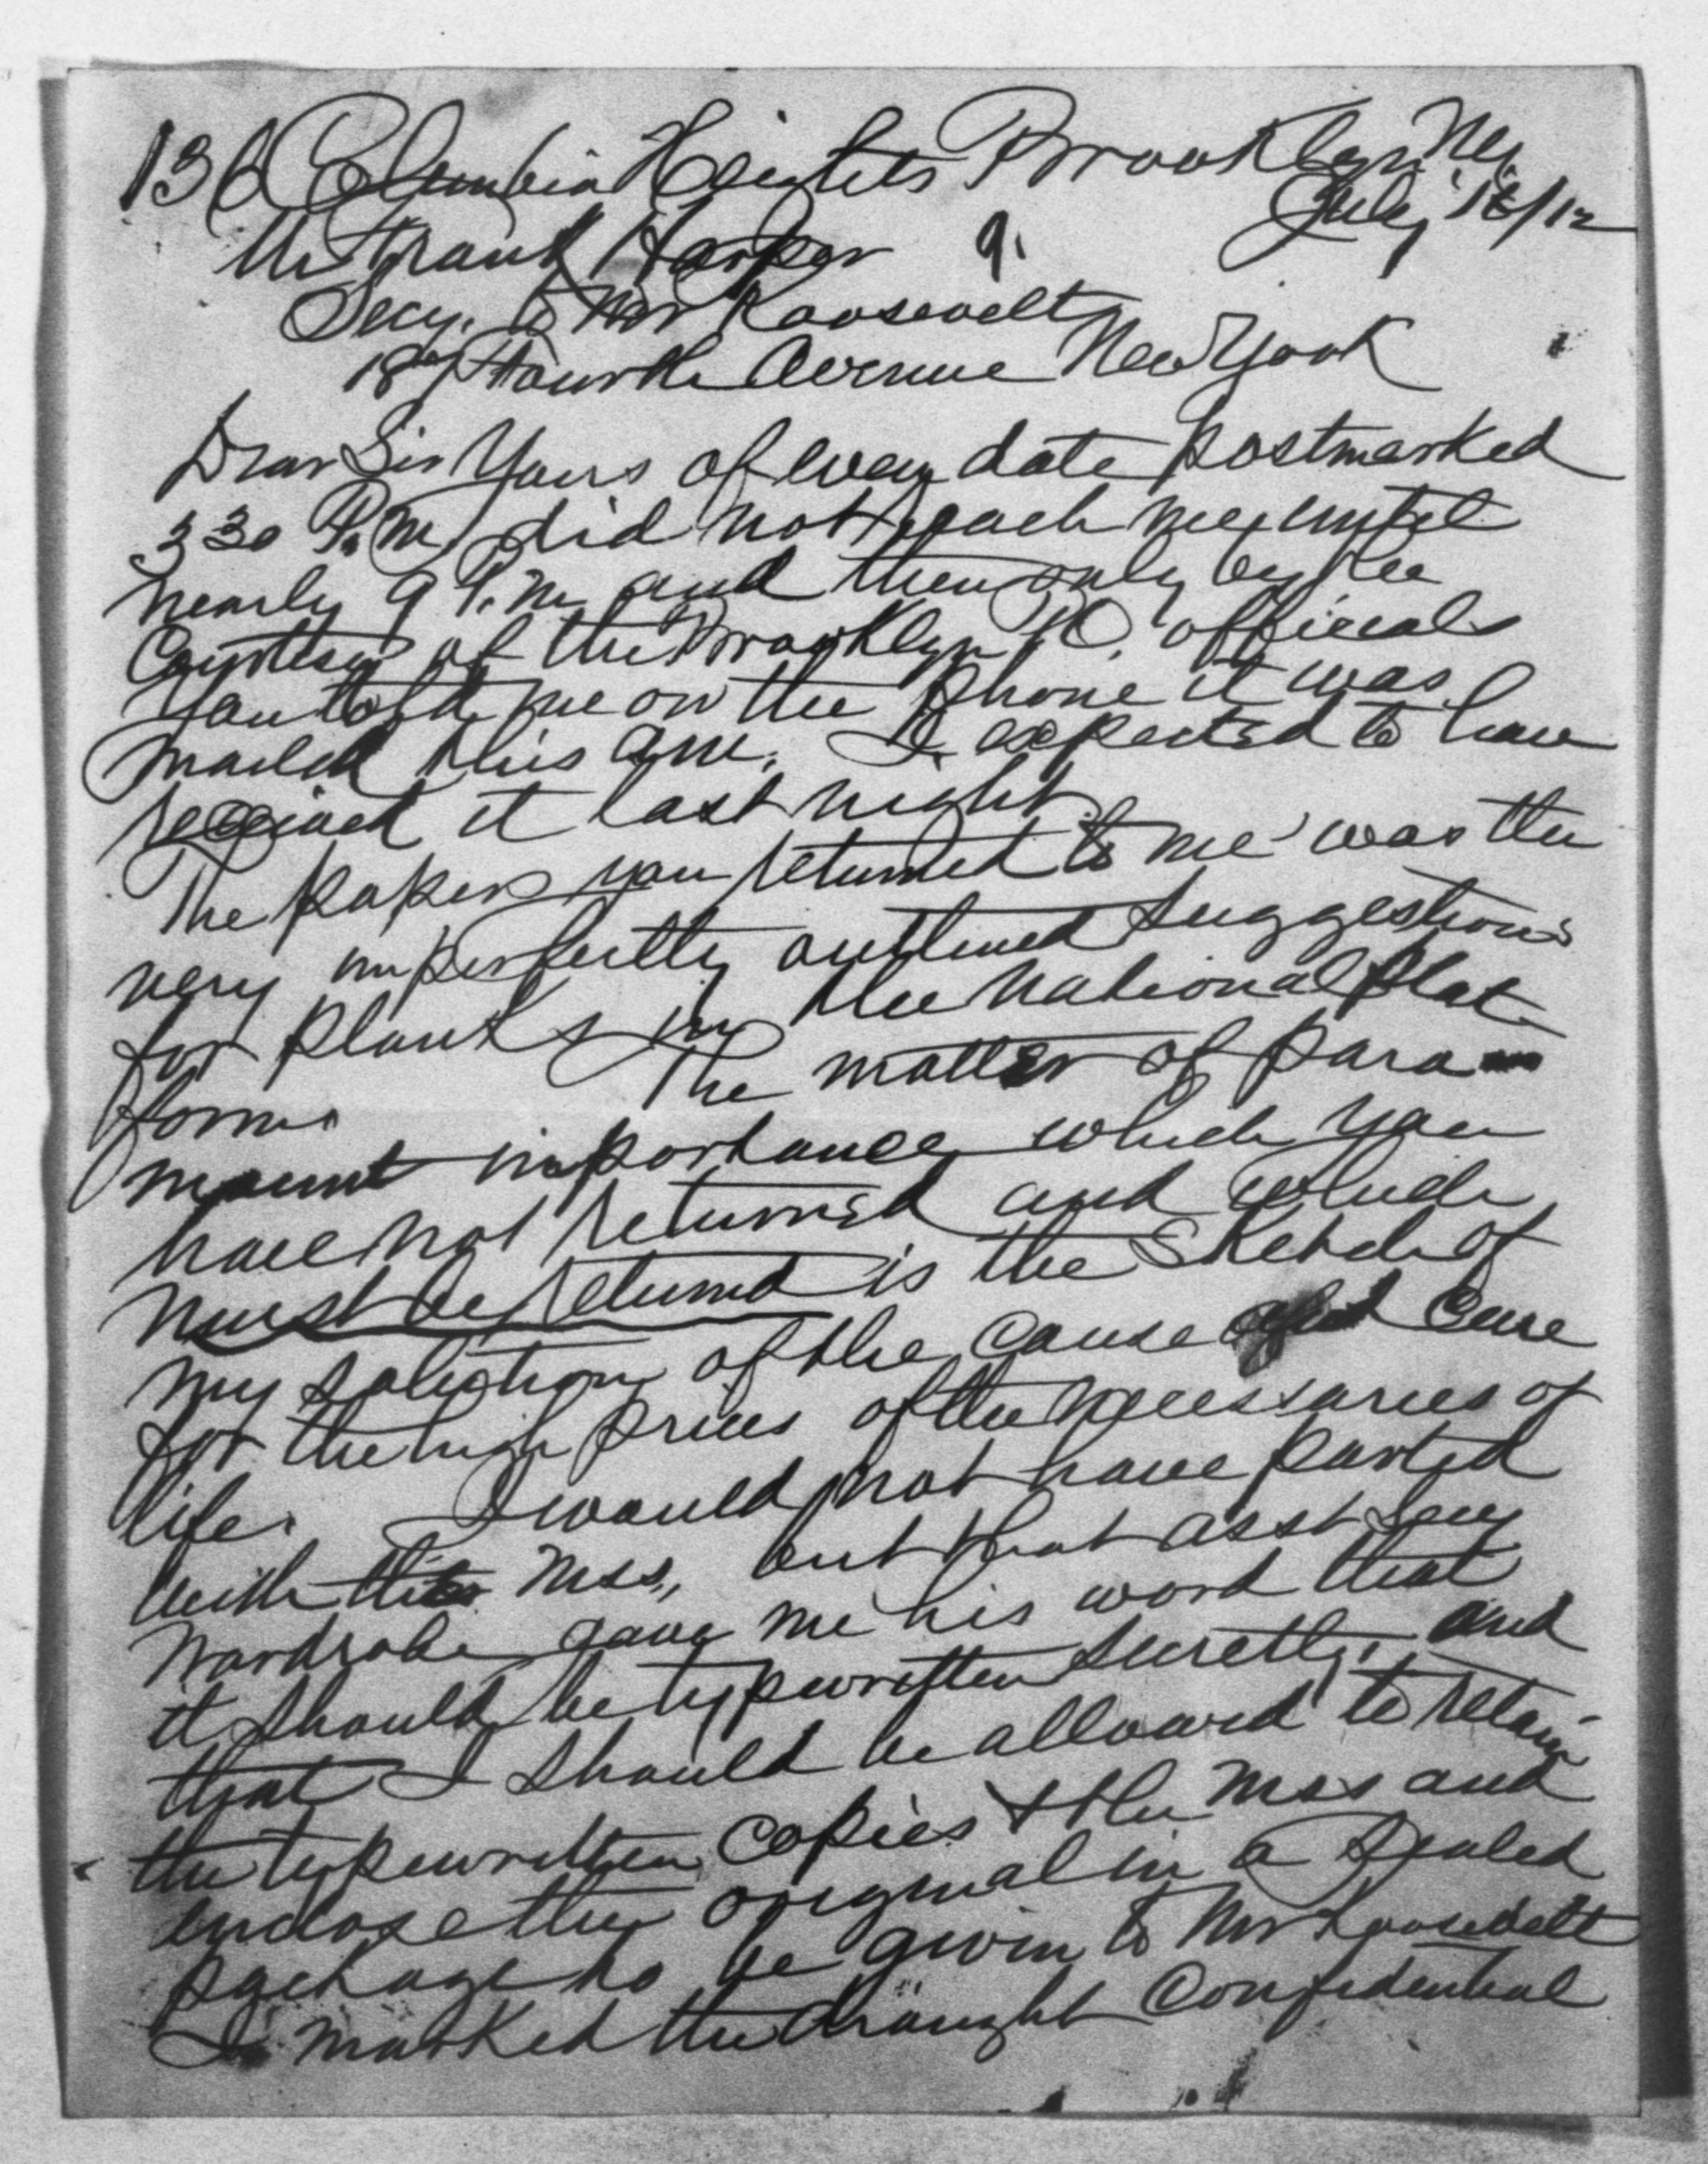 136 Columbia Heights Brooklyn NY
July 18/12
Mr Frank Harper 9.
Secy. to Mr Roosevelt
Fourth Avenue New York
Dear Sir Yours of even date postmarked
3 30 P.M. did not reach me until
nearly 9 P.M. and then only by the
Courtesy of the Brooklyn P.O. officials
You told me on the phone it was
mailed this am. I expected to have
received it last night.
The paper you returned to me was the
very imperfectly outlined suggestions
for planks in the National Plat-
form. The matter of para-
mount importance which you
have not returned and which
must be returned is the sketch of
my solution of the cause and cure
for the high prices of the necessaries of
life. I would not have parted
with this Mss, but that asst Secy
Wardrobe gave me his word that
it should be typewritten secretly, and
that I should be allowed to retain
the typewritten copies & the Mss and
enclose the original in a sealed
package to be given to Mr Roosevelt
I marked the draught Confidential